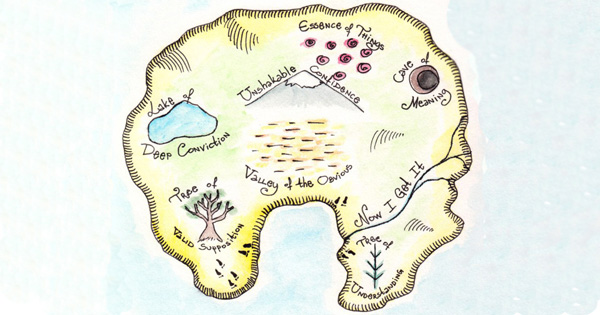 Essence of Things
Unshakable Confidence
Cave of
Meaning
Lake of
Deep Conviction
Valley of the Obvious
Tree of
Valid Supposition
Now I Get It
Tree of
Understanding